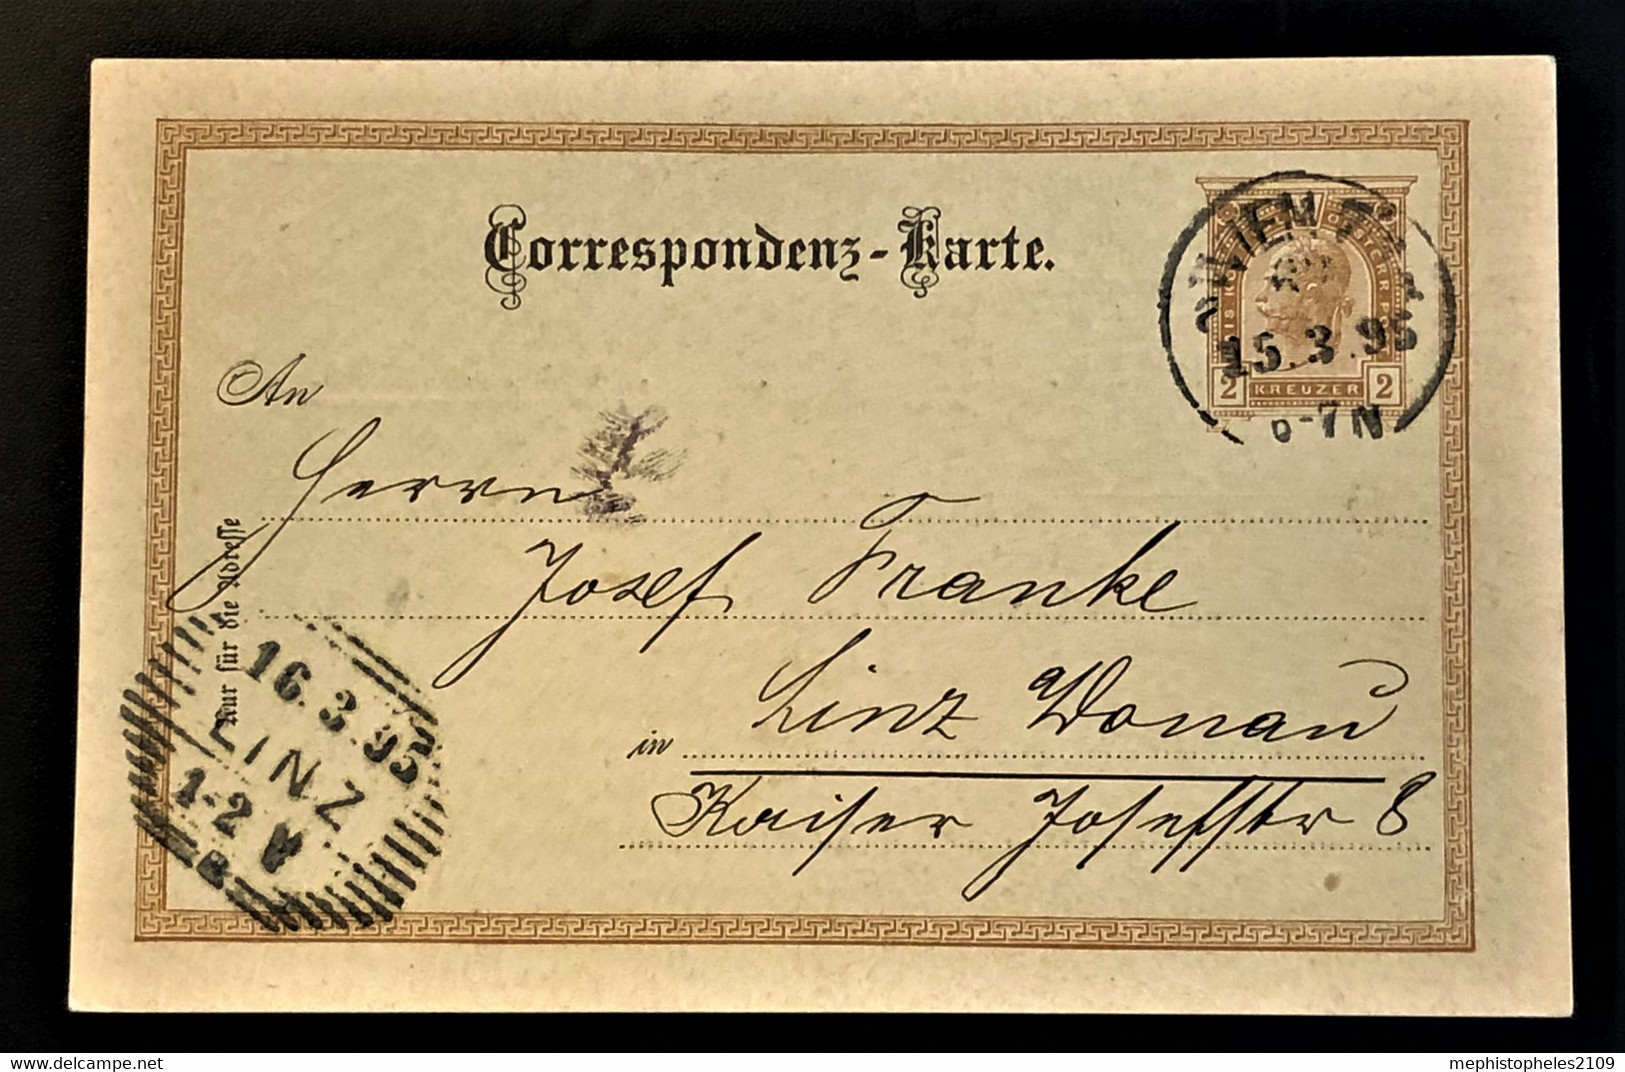 Correspondenz-Karte.
WIEN
15.3.95
6-7N
2 KREUZER 2
An
Herrn
Josef Franke
in Linz Donau
Kaiser Josefstr 8
Nur für die Adresse
16.3.95
LINZ
1-2
B
delcampe.net
mephistopheles2109